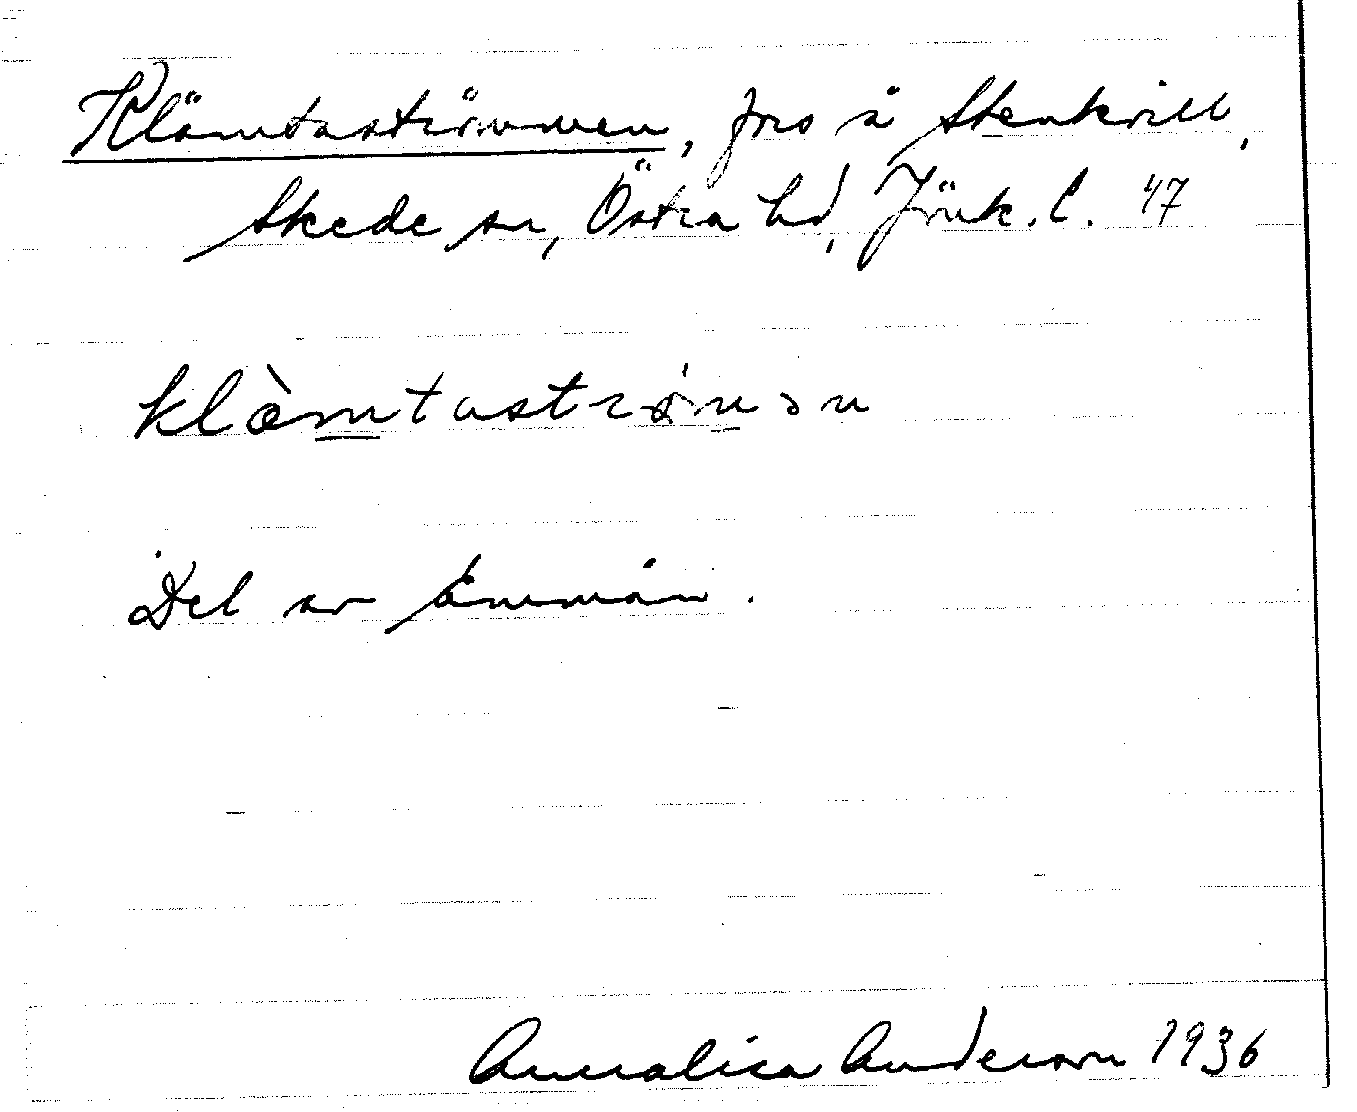 Klämtaströmmen, fors å Stenkvill,
Skede sn, Östra hd, Jönk. l. 47
klæ̀mtaströmən
Del av Emmån.
Annalisa Anderson 1936